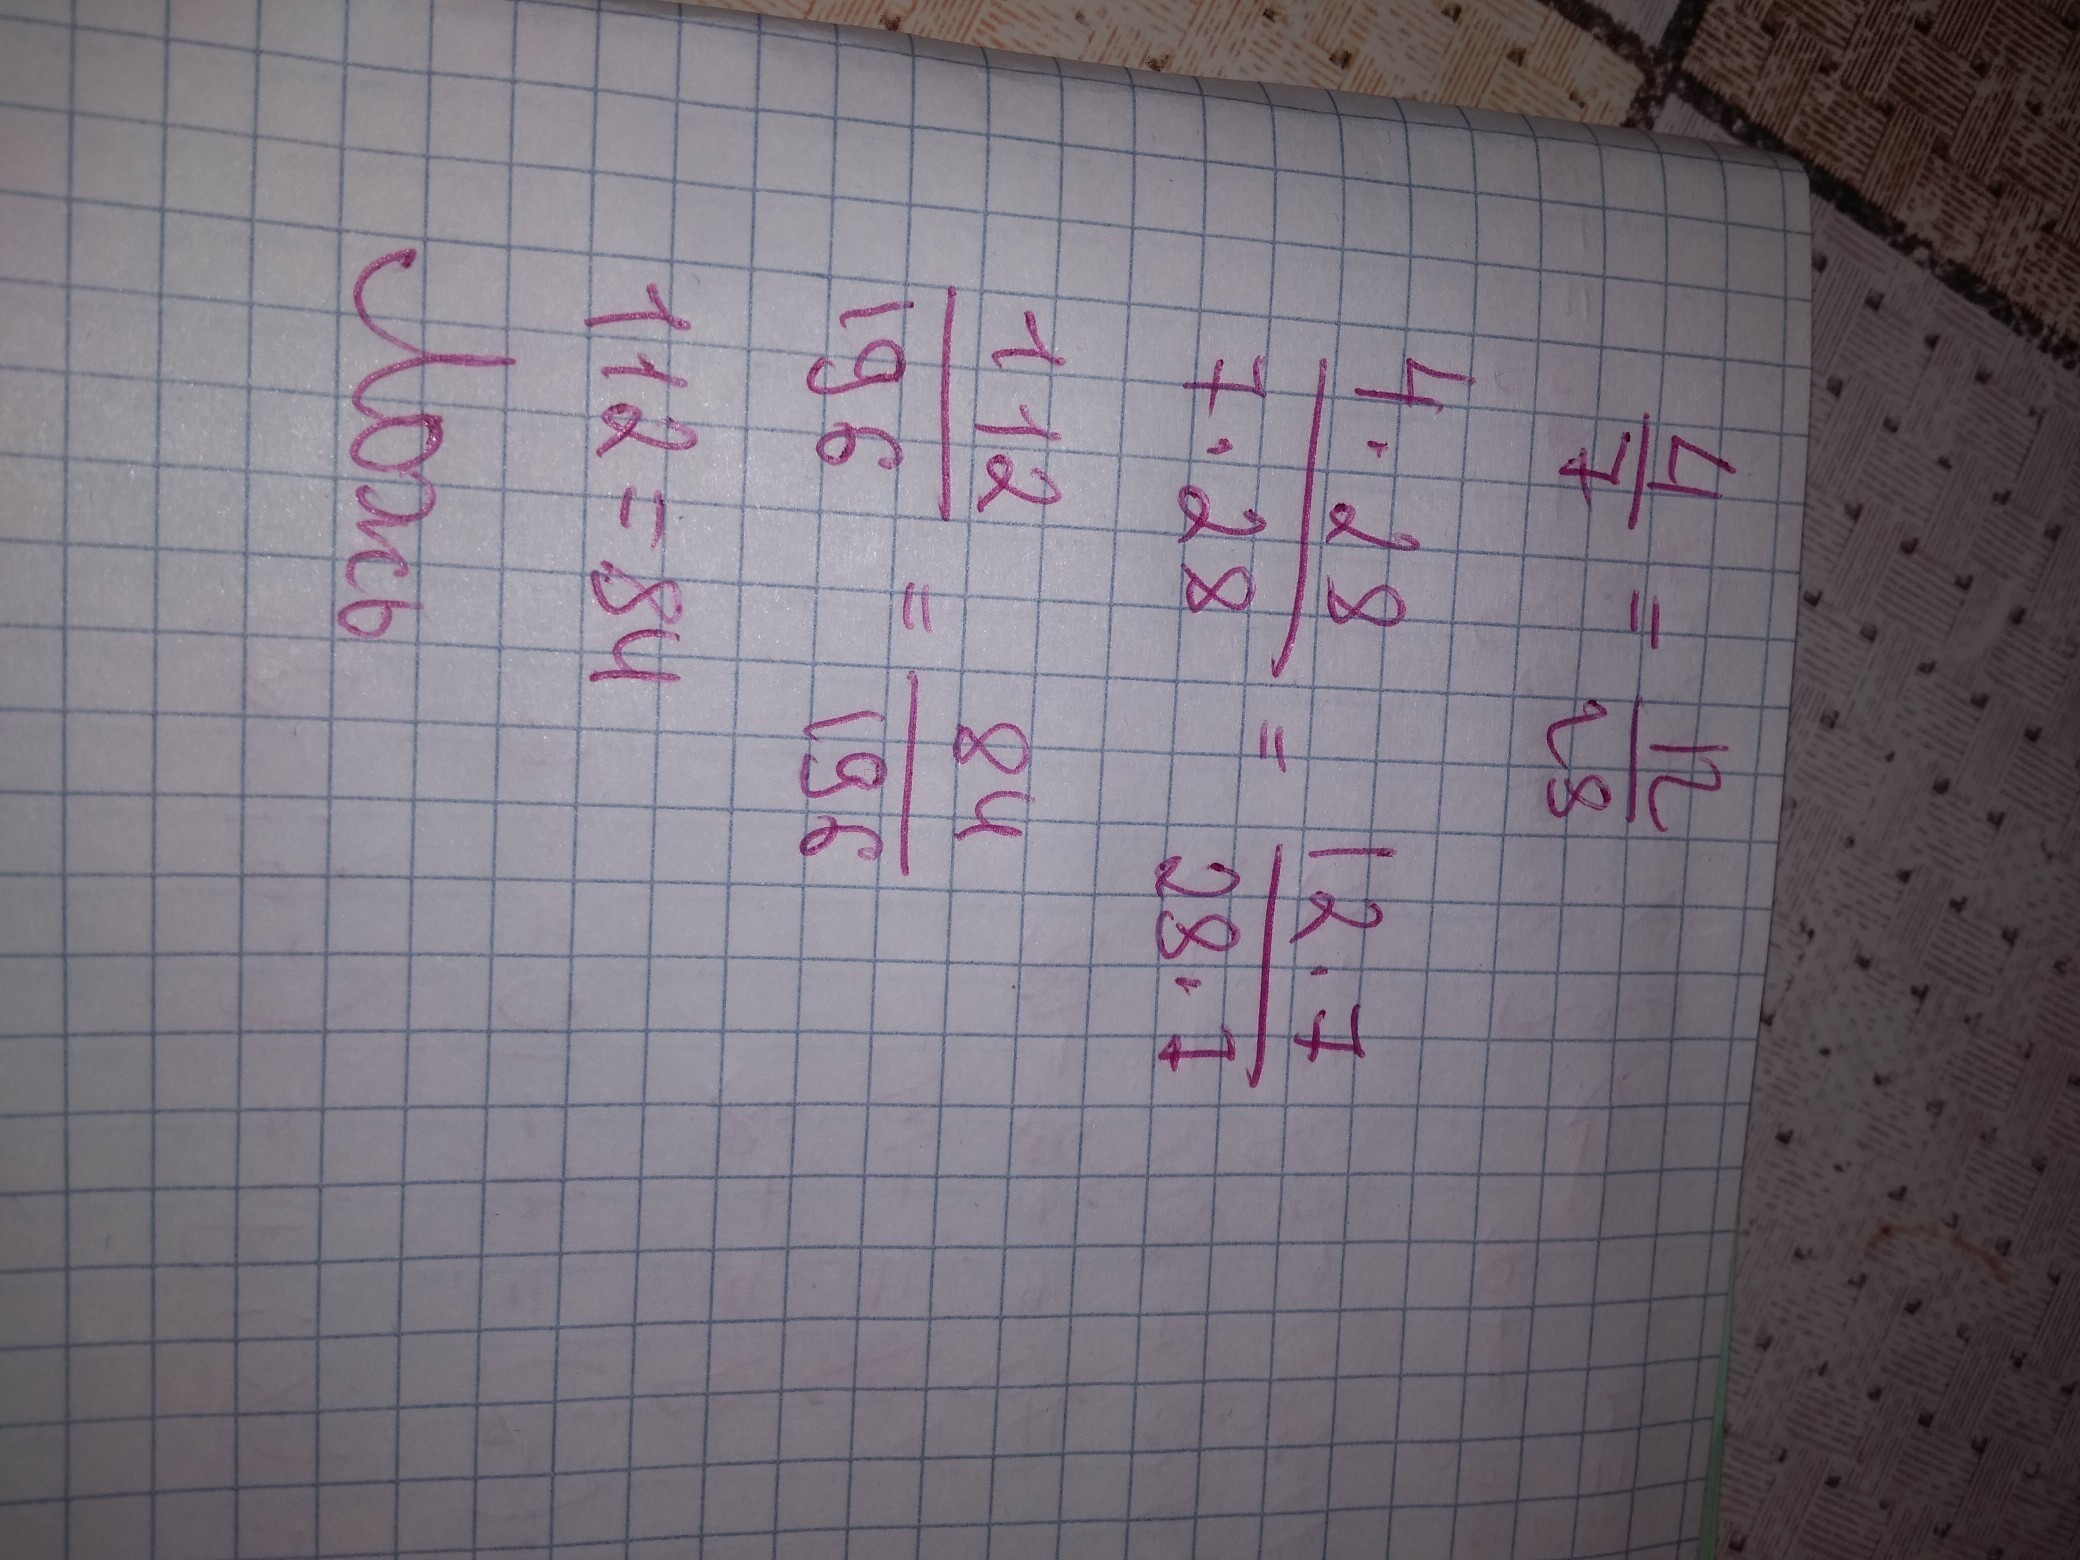 4/7 = 12/28
4·28/7·28 = 12·7/28·7
112/196 = 84/196
112=84
Ложь